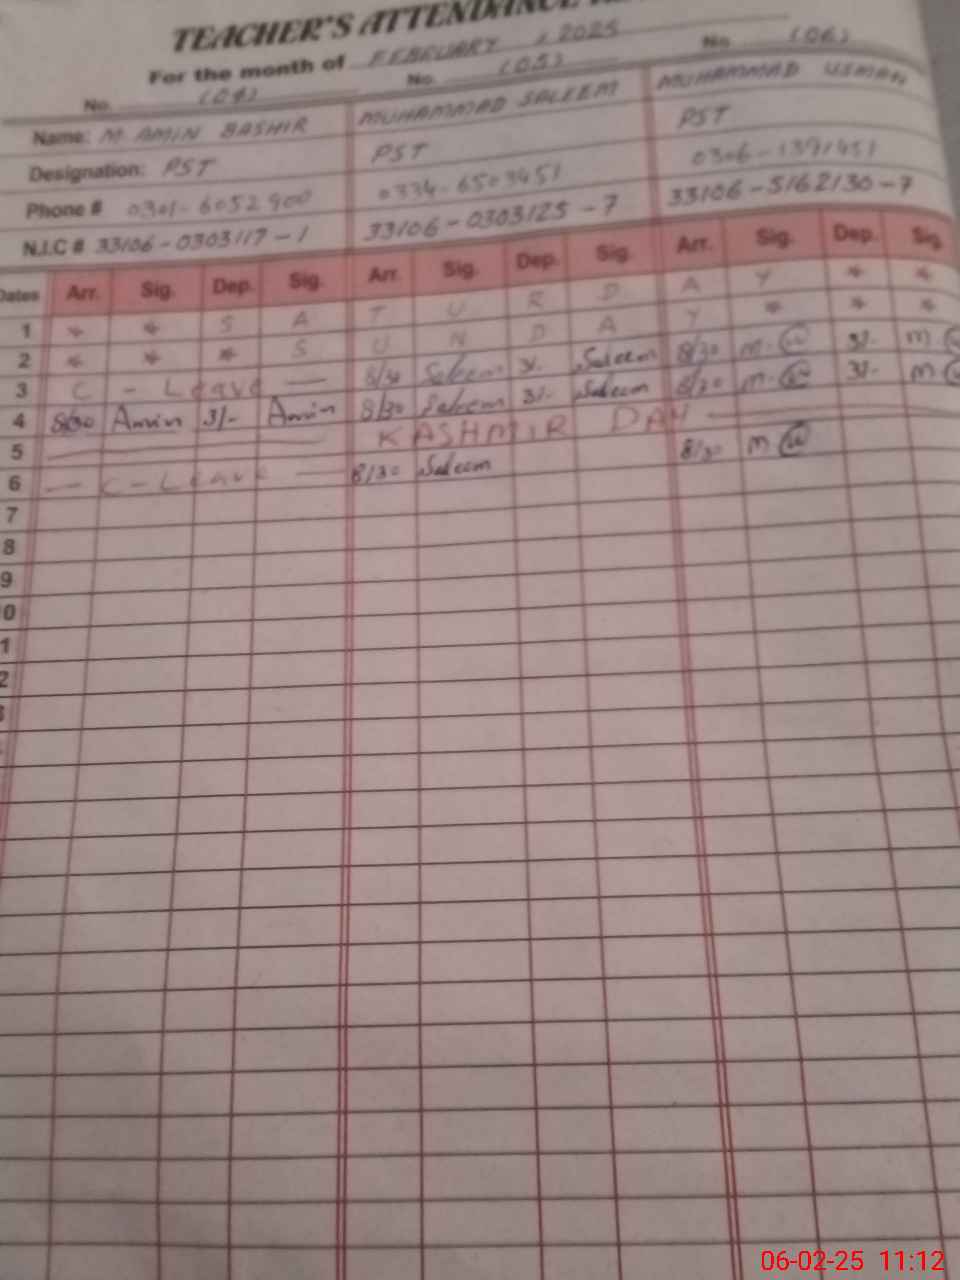 TEACHER'S ATTENDANCE
For the month of FEBRUARY, 2025
No. (04) No. (05) No. (06)
Name: M AMIN BASHIR MUHAMMAD SALEEM MUHAMMAD USMAN
Designation: PST PST PST
Phone # 0301-6052900 0334-6503451 0306-1391451
N.I.C # 33106-0303117-1 33106-0303125-7 33106-5162130-7
Dates Arr. Sig. Dep. Sig. Arr. Sig. Dep. Sig. Arr. Sig. Dep. Sig.
1 * * S A T U R D A Y * *
2 * * * S U N D A Y * * *
3 C - Leave — 8/30 Saleem 3/- Saleem 8/30 M. 3/- M
4 8/30 Amin 3/- Amin 8/30 Saleem 3/- Saleem 8/30 M. 3/- M.
5 KASHMIR DAY
6 — C - Leave — 8/30 Saleem 8/30 M
7
8
9
0
1
2
3
06-02-25 11:12